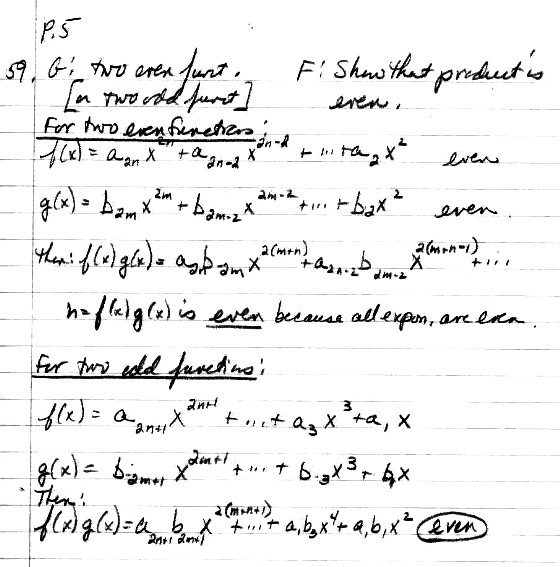 P.5
59. G: two even funct. F: Show that product is
[or two odd funct] even.
For two even functions:
f(x) = a₂ₙ x²ⁿ + a₂ₙ₋₂ x²ⁿ⁻² + ... + a₂ x² even
g(x) = b₂ₘ x²ᵐ + b₂ₘ₋₂ x²ᵐ⁻² + ... + b₂x² even.
then: f(x)g(x) = a₂ₙb₂ₘ x²⁽ᵐ⁺ⁿ⁾ + a₂ₙ₋₂b₂ₘ₋₂ x²⁽ᵐ⁺ⁿ⁻¹⁾ + ...
h = f(x)g(x) is even because all expon, are even.
For two odd functions:
f(x) = a₂ₙ₊₁ x²ⁿ⁺¹ + ... + a₃ x³ + a₁ x
g(x) = b₂ₘ₊₁ x²ᵐ⁺¹ + ... + b₃x³ + b₁x
Then:
f(x)g(x) = a₂ₙ₊₁ b₂ₘ₊₁ x²⁽ᵐ⁺ⁿ⁺¹⁾ + ... + a₁b₃x⁴ + a₁b₁x² even